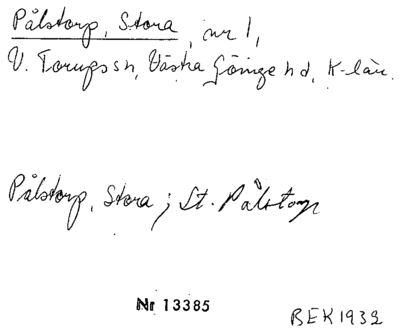 Pålstorp, Stora, nr 1,
V. Torups sn, Västra Göinge hd, K-län.
Pålstorp, Stora; St. Pålstorp
Nr 13385
BEK 1932